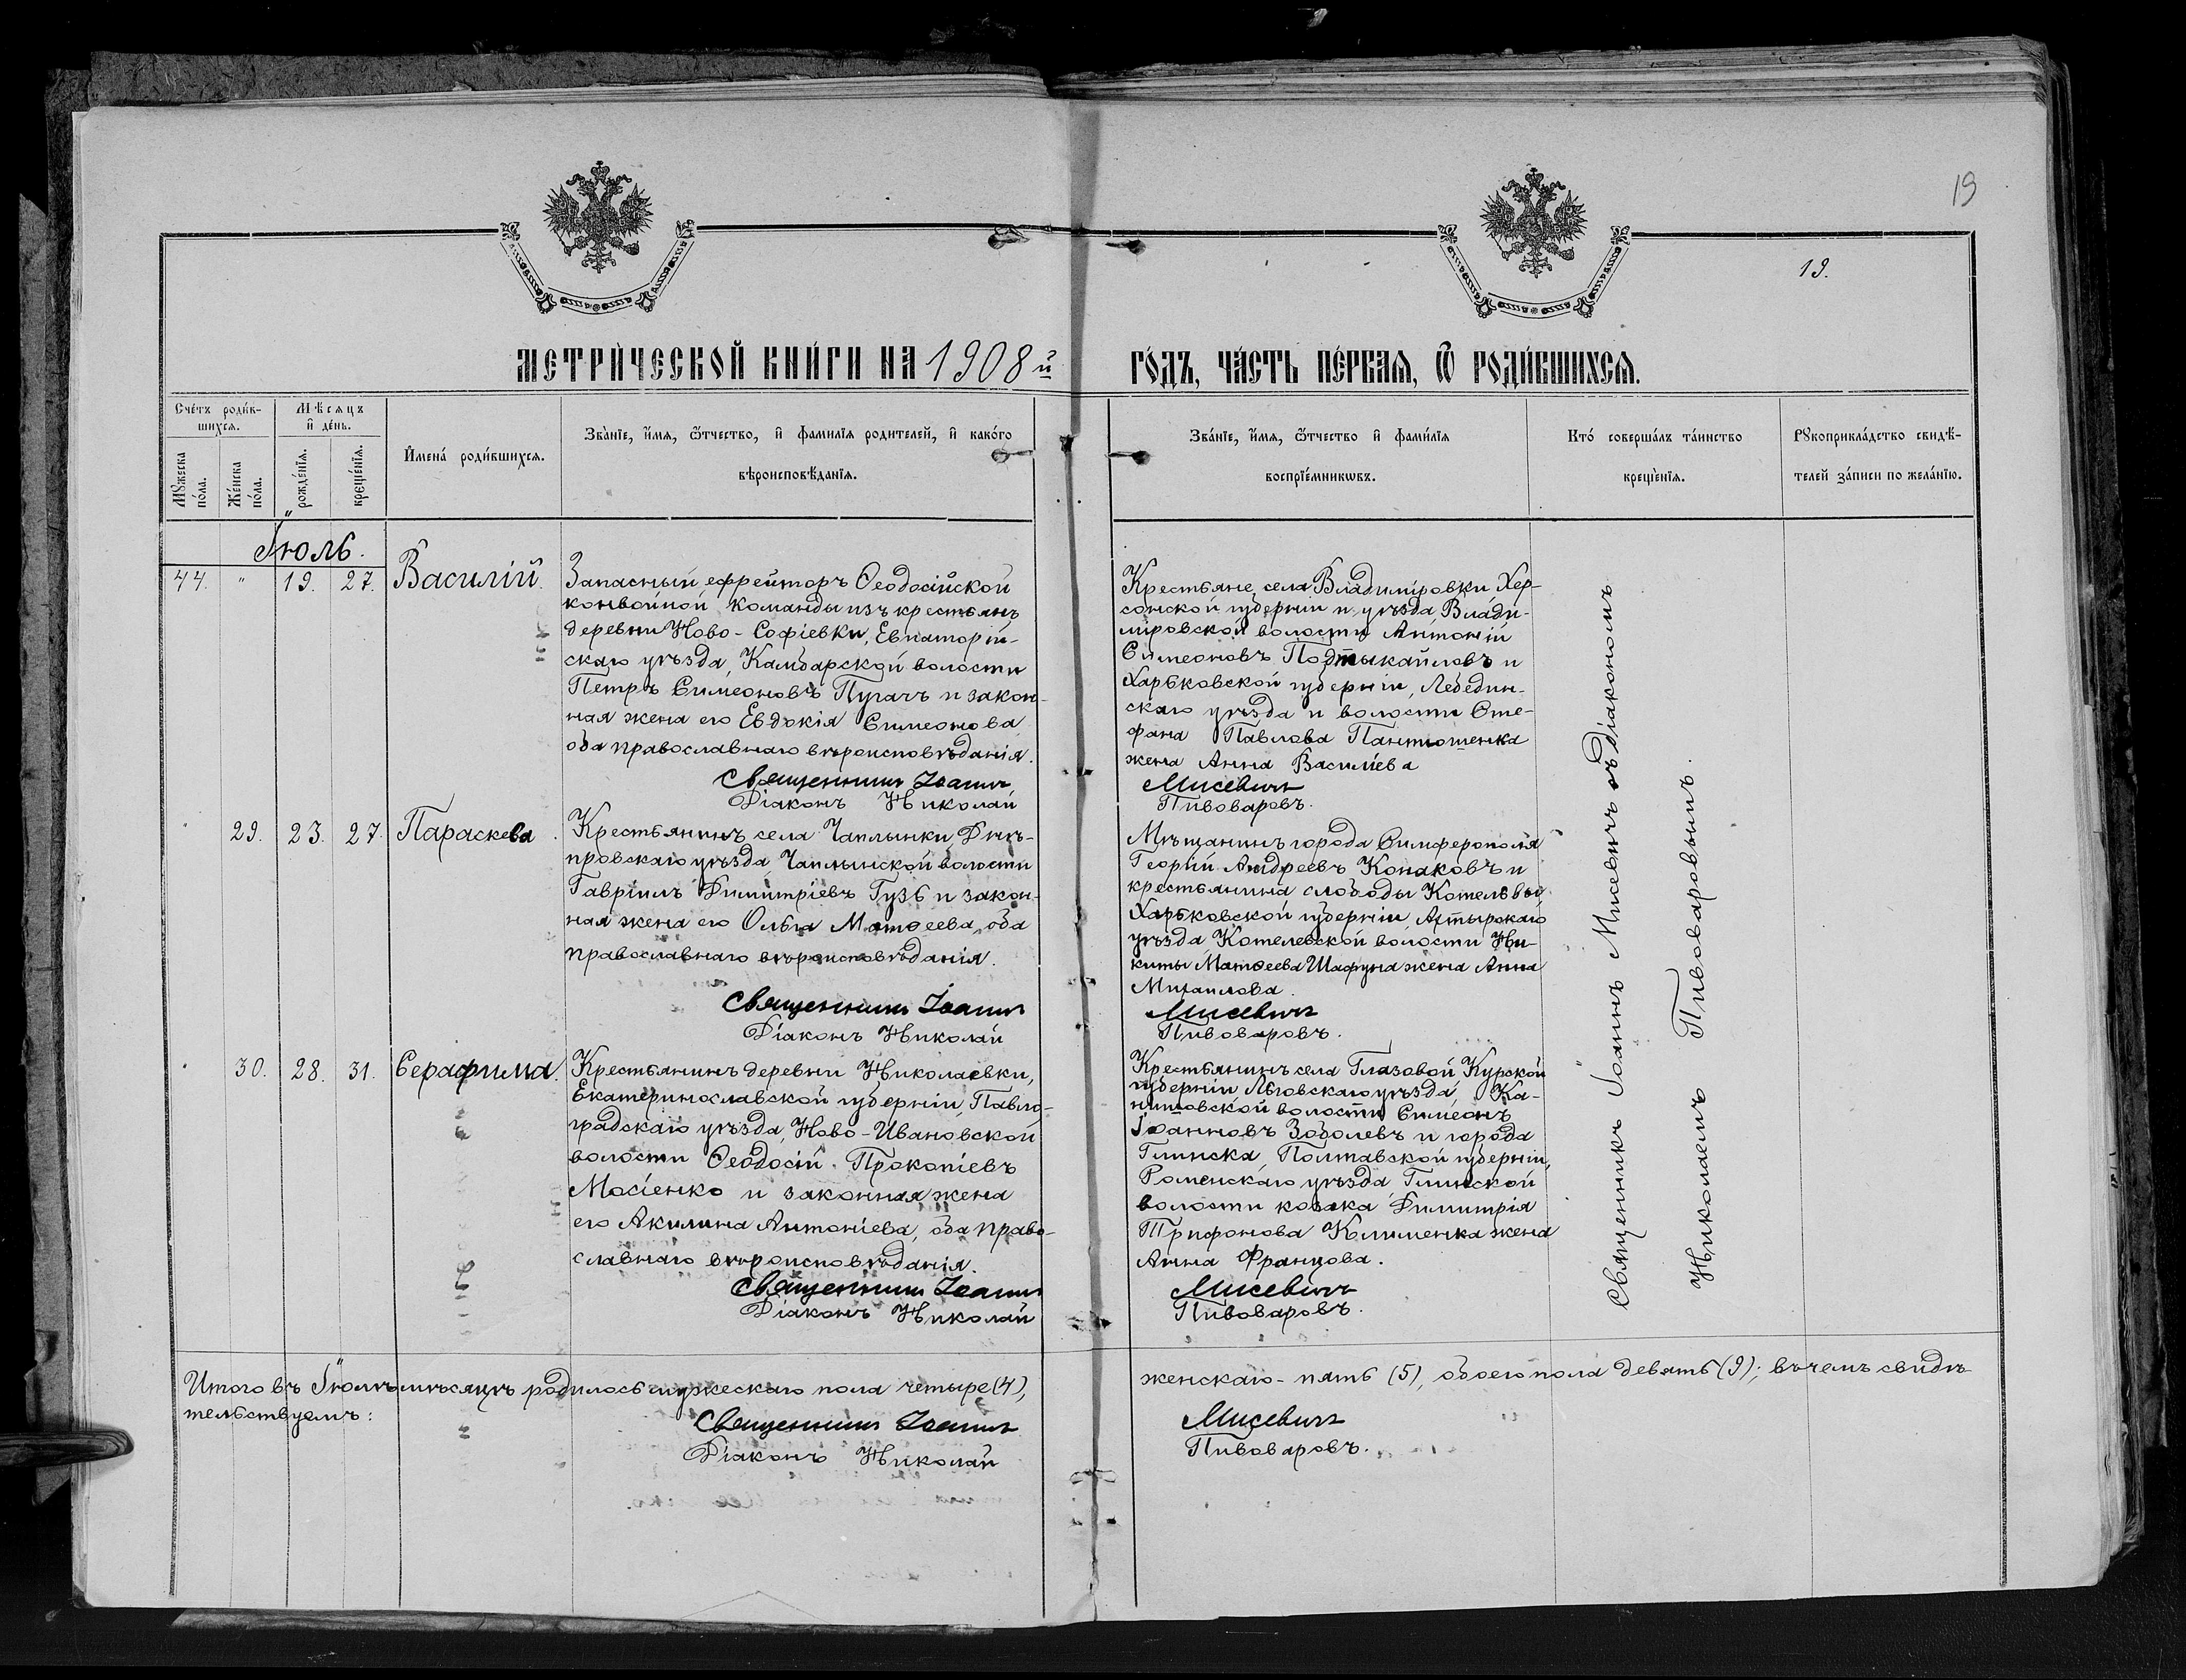 19
19.
МЕТРИ́ЧЕСКОЙ КНИ́ГИ НА 1908й ГО́ДЪ, ЧА́СТЬ ПЕ́РВАЯ, Ѿ РОДИ́ВШИХСЯ.
Сче́тъ роди́в-
шихся.
Мꙋжеска по́ла.
Же́нска по́ла.
Мѣ́сяцъ
и҆ де́нь.
рожде́нїя.
креще́нїя.
И҆мена́ роди́вшихся.
Зва́нїе, и҆́мя, ѻ҆́тчество, и҆ фами́лїя родителей, и҆ како́го
вѣроисповѣ́данїя.
Зва́нїе, и҆́мя, ѻ҆́тчество и҆ фами́лїя
воспрїе́мникѡвъ.
Кто́ соверша́лъ та́инство
креще́нїя.
Рꙋкоприкла́дство свидѣ́-
телей за́писи по жела́нїю.
Іюль.
44. " 19. 27. Василій.
Запасный ефрейторъ Ѳеодосійской
конвойной команды изъ крестьянъ
деревни Ново-Софіевки, Евпаторій-
скаго уѣзда, Камбарской волости
Петръ Симеоновъ Пугачъ и закон-
ная жена его Евдокія Симеонова,
оба православнаго вѣроисповѣданія.
Священникъ Іоаннъ
Діаконъ Николай
Крестьяне села Владиміровки Хер-
сонской губерніи и уѣзда, Влади-
міровской волости Антоній
Симеоновъ Подтыкайловъ и
Харьковской губерніи, Лебедин-
скаго уѣзда и волости Сте-
фана Павлова Пантюшенка
жена Анна Василіева
Мисевичъ
Пивоваровъ.
29. 23. 27. Параскева.
Крестьянинъ села Чаплынки Днѣ-
провскаго уѣзда, Чаплынской волости
Гавріилъ Димитріевъ Гузь и закон-
ная жена его Ольга Матѳеева, оба
православнаго вѣроисповѣданія.
Священникъ Іоаннъ
Діаконъ Николай
Мѣщанинъ города Симферополя
Георгій Андреевъ Конаковъ и
крестьянина слободы Котельвы
Харьковской губерніи, Ахтырскаго
уѣзда, Котелевской волости Ни-
киты Матѳеева Шафуна жена Анна
Михаилова.
Мисевичъ
Пивоваровъ.
30. 28. 31. Серафима.
Крестьянинъ деревни Николаевки,
Екатеринославской губерніи, Павло-
градскаго уѣзда, Ново-Ивановской
волости Ѳеодосій Прокопіевъ
Мосіенко и законная жена
его Акилина Антоніева, оба право-
славнаго вѣроисповѣданія.
Священникъ Іоаннъ
Діаконъ Николай
Крестьянинъ села Глазовой Курской
губерніи Льговскаго уѣзда, Ка-
волости Симеонъ
Іоанновъ Зоболевъ и города
Глинска, Полтавской губерніи,
Роменскаго уѣзда Глинской
волости козака Димитрія
Трифонова Клименка жена
Анна Францова.
Мисевичъ
Пивоваровъ.
Священникъ Іоаннъ Мисевичъ съ діакономъ
Николаемъ Пивоваровымъ.
Итого въ Іюлѣ мѣсяцѣ родилось мужескаго пола четыре (4), женскаго - пять (5), обоего пола девять (9); въ чемъ свидѣ-
тельствуемъ:
Священникъ Іоаннъ Мисевичъ
Діаконъ Николай Пивоваровъ.